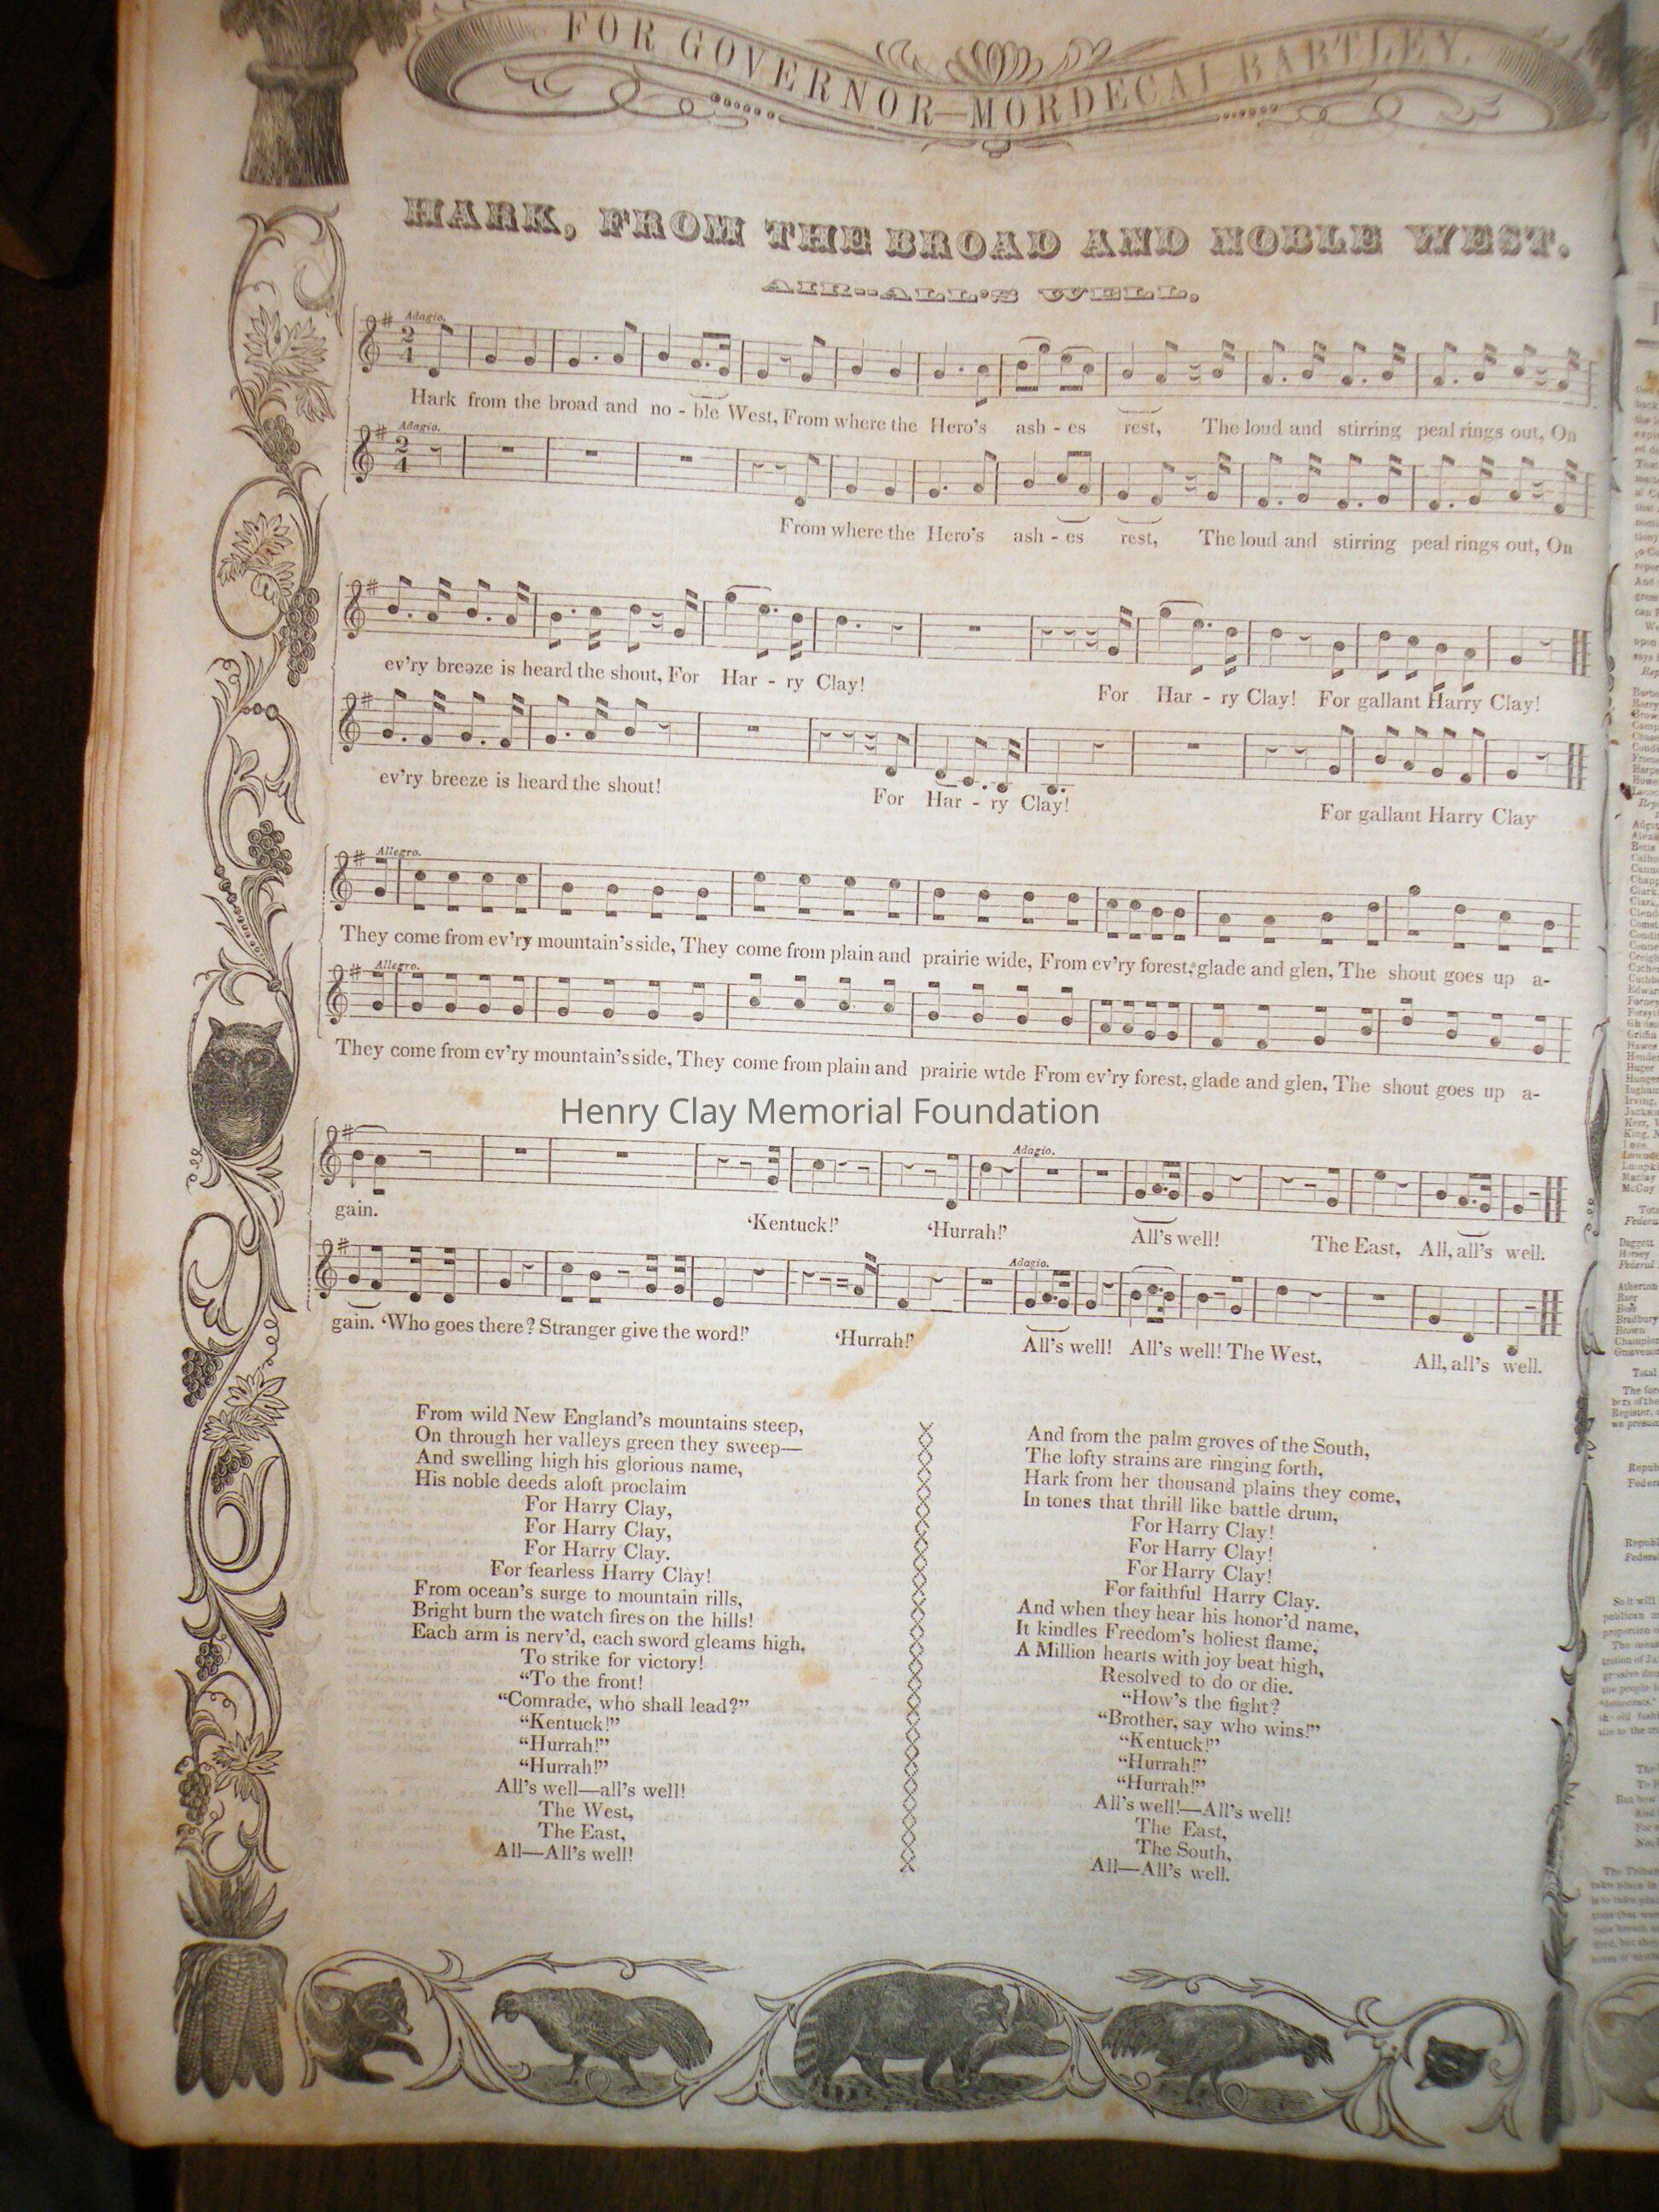 FOR GOVERNOR—MORDECAI BARTLEY.
HARK, FROM THE BROAD AND NOBLE WEST.
AIR--ALL'S WELL,
Adagio.
2
4
Hark from the broad and no - ble West, From where the Hero's ash - es rest, The loud and stirring peal rings out, On
Adagio.
2
4
From where the Hero's ash - es rest, The loud and stirring peal rings out, On
ev'ry breeze is heard the shout, For Har - ry Clay! For Har - ry Clay! For gallant Harry Clay!
ev'ry breeze is heard the shout! For Har - ry Clay! For gallant Harry Clay
Allegro.
They come from ev'ry mountain's side, They come from plain and prairie wide, From ev'ry forest, glade and glen, The shout goes up a-
Allegro.
They come from ev'ry mountain's side, They come from plain and prairie wtde From ev'ry forest, glade and glen, The shout goes up a-
Henry Clay Memorial Foundation
Adagio.
gain. 'Kentuck!' 'Hurrah!' All's well! The East, All, all's well.
Adagio.
gain. 'Who goes there? Stranger give the word!' 'Hurrah!' All's well! All's well! The West, All, all's well.
From wild New England's mountains steep,
On through her valleys green they sweep—
And swelling high his glorious name,
His noble deeds aloft proclaim
For Harry Clay,
For Harry Clay,
For Harry Clay.
For fearless Harry Clay!
From ocean's surge to mountain rills,
Bright burn the watch fires on the hills!
Each arm is nerv'd, each sword gleams high,
To strike for victory!
"To the front!
"Comrade, who shall lead?"
"Kentuck!"
"Hurrah!"
"Hurrah!"
All's well—all's well!
The West,
The East,
All—All's well!
And from the palm groves of the South,
The lofty strains are ringing forth,
Hark from her thousand plains they come,
In tones that thrill like battle drum,
For Harry Clay!
For Harry Clay!
For Harry Clay!
For faithful Harry Clay.
And when they hear his honor'd name,
It kindles Freedom's holiest flame,
A Million hearts with joy beat high,
Resolved to do or die.
"How's the fight?
"Brother, say who wins!"
"Kentuck!"
"Hurrah!"
"Hurrah!"
All's well!—All's well!
The East,
The South,
All—All's well.